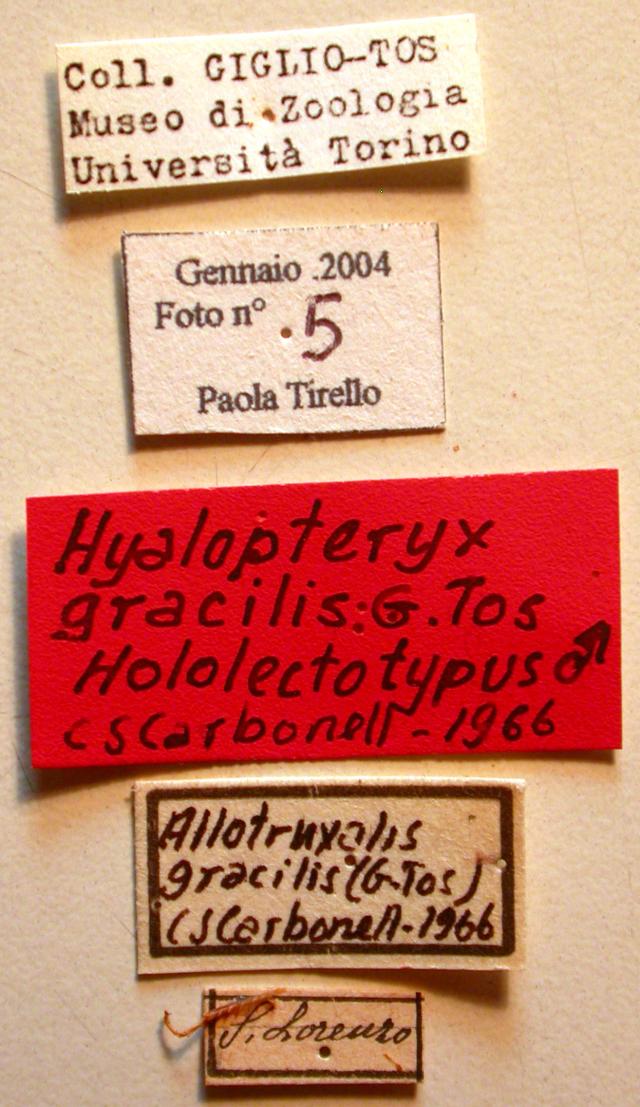 Coll. GIGLIO-TOS
Museo di Zoologia
Università Torino
Gennaio .2004
Foto n° 5
Paola Tirello
Hyalopteryx
gracilis: G. Tos
Hololectotypus ♂
CS Carbonell - 1966
Allotruxalis
gracilis (G. Tos)
CS Carbonell - 1966
S. Lorenzo